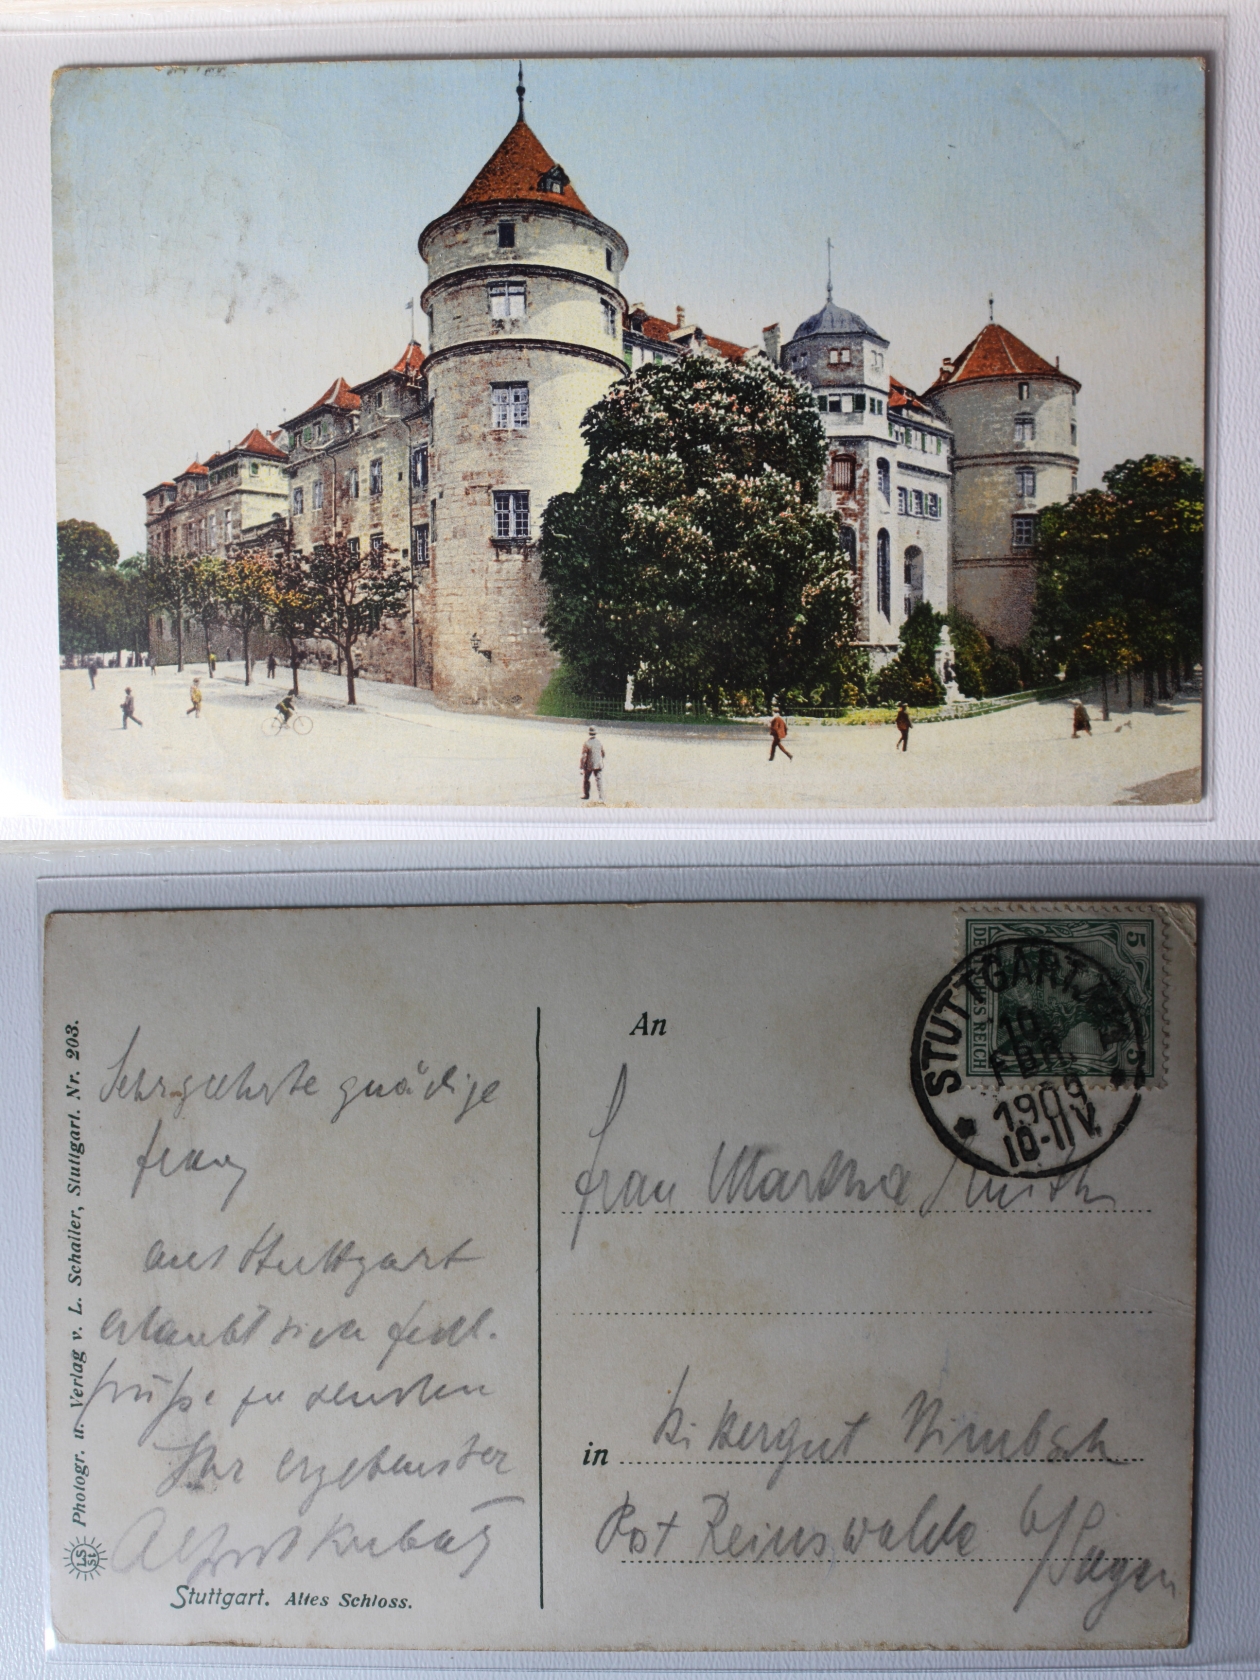 Photogr. u. Verlag v. L. Schaller, Stuttgart. Nr. 203.
LS
St
Sehrgeehrte gnädige
Frau
aus Stuttgart
erlaubt sich fedl.
Grüße zu senden
Ihr ergebenster
Alfred
Stuttgart. Altes Schloss.
An
Frau Martha Smith
in Rittergut Nimbsch
Post Reinswalde b/Sagan
DEUTSCHES REICH
5
5
STUTTGART
10
FBR.
1909
10-11V.